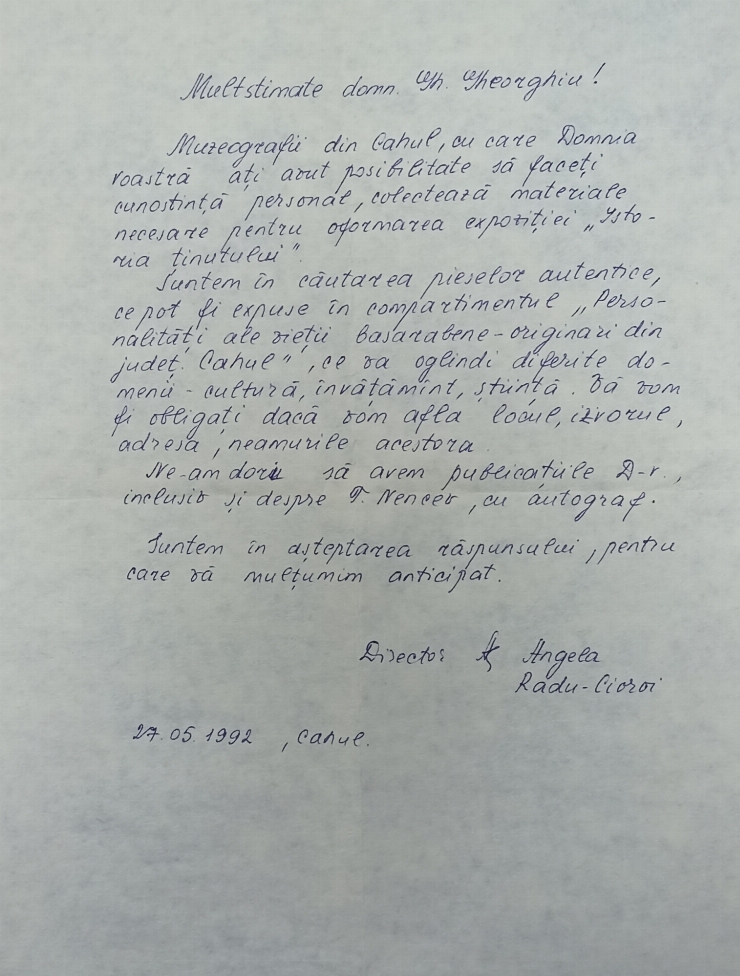 Multstimate domn. Gh. Gheorghiu!
Muzeografii din Cahul, cu care Domnia
voastră ați avut posibilitate să faceți
cunostință personal, colectează materiale
necesare pentru oformarea expoziției „Isto-
ria ținutului".
Suntem în căutarea pieselor autentice,
ce pot fi expuse în compartimentul „Perso-
nalități ale vieții basarabene - originari din
județ. Cahul", ce va oglindi diferite do-
menii - cultură, învățămînt, știință. Vă vom
fi obligați dacă vom afla locul, izvorul,
adresa, neamurile acestora.
Ne-am dori să avem publicațiile D-v.,
inclusiv și despre T. Nencev, cu autograf.
Suntem în așteptarea răspunsului, pentru
care vă mulțumim anticipat.
Director Angela
Radu-Cioroi
27.05.1992, Cahul.